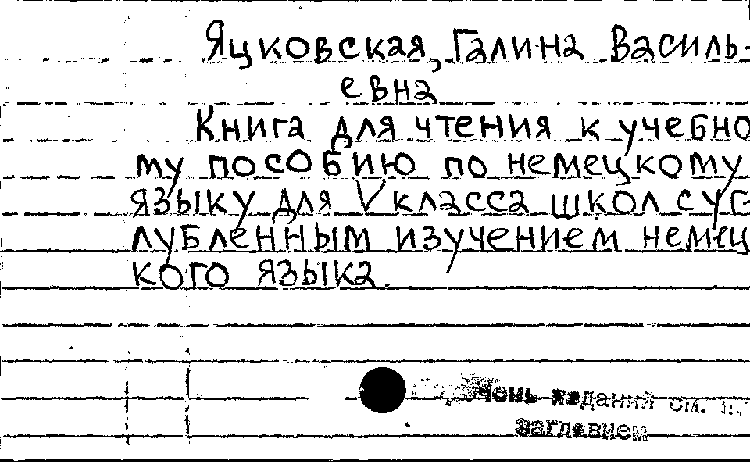 Яцковская, Галина Василь-
евна
Книга для чтения к учебно
му пособию по немецкому
языку для V класса школ с уг-
лубленным изучением немец
кого языка.
изданий см. п.
заглавием